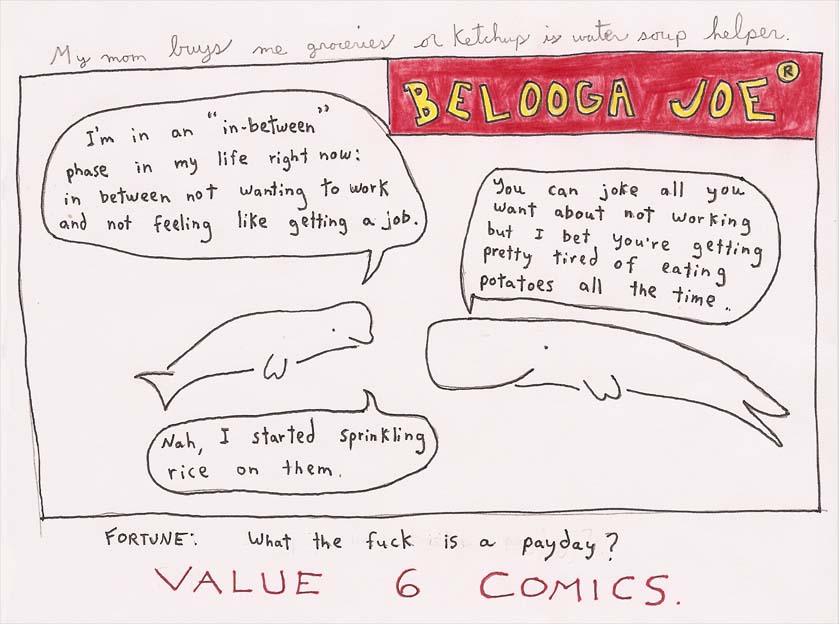 My mom buys me groceries or Ketchup is water soup helper.
BELOOGA JOE®
I'm in an "in-between"
phase in my life right now:
in between not wanting to work
and not feeling like getting a job.
You can joke all you
want about not working
but I bet you're getting
pretty tired of eating
potatoes all the time..
Nah, I started sprinkling
rice on them.
FORTUNE: What the fuck is a payday?
VALUE 6 COMICS.